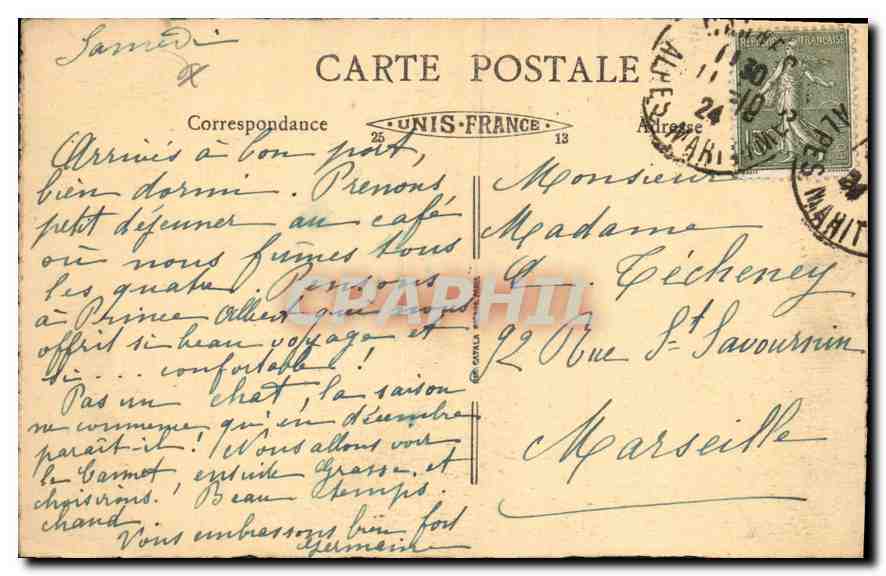 Samedi
CARTE POSTALE
Correspondance
25 UNIS-FRANCE 13
Adresse
REPUBLIQUE FRANCAISE
ALPES MARIT
24
ALPES MARIT
Arrivés à bon port,
bien dormi. Prenons
petit déjeuner au café
où nous fûmes tous
les quatre. Pensons
à Prince Albert qui nous
offrit si beau voyage et
si... confortable!
Pas un chat, la saison
ne commence qu'en décembre
paraît-il! Nous allons voir
le Cannet, ensuite Grasse et
choisirons! Beau temps
chaud
Vous embrassons bien fort
Germaine
Monsieur
Madame
A. Técheney
92 Rue St Savournin
Marseille
CPAPHIL